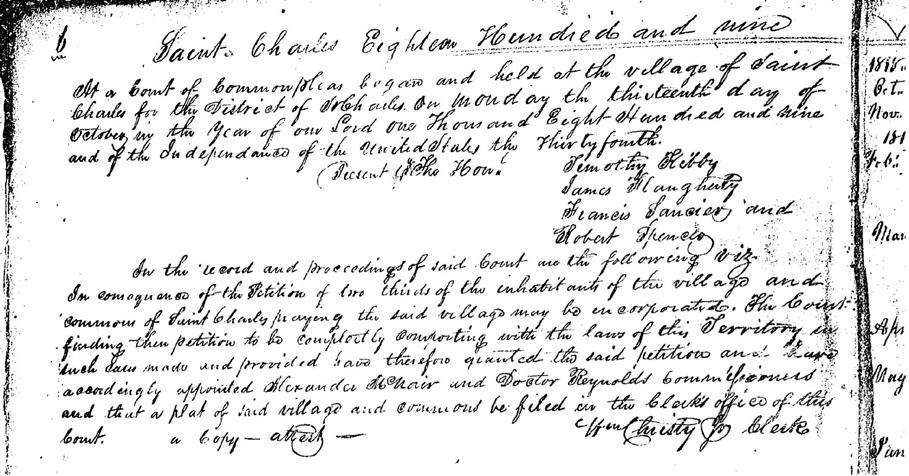 6
Saint Charles Eighteen Hundred and nine
At a Court of Commonpleas began and held at the village of Saint
Charles for the District of St Charles on Monday the thirteenth day of
October, in the Year of our Lord one Thousand Eight Hundred and nine
and of the Independance of the United States the Thirtyfourth.
(Present) The Honl
Timothy Kibby
James Flaugherty
Francis Saucier, and
Robert Spencer
In the record and proceedings of said Court are the following viz.
In consequence of the Petition of two thirds of the inhabitants of the village and
commons of Saint Charles praying the said village may be incorporated. The Court
finding then petition to be comportly comporting with the laws of this Territory in
such Case made and provided have therefore granted the said petition and have
accordingly appointed Alexander McNair and Doctor Reynolds Commissioners
and that a plat of said village and commons be filed in the Clerks office of this
Court. a Copy — attest —
Wm Christy Jr Clerk
1818
Oct.
Nov.
181
Feb.
Mar
Apr
May
Jun